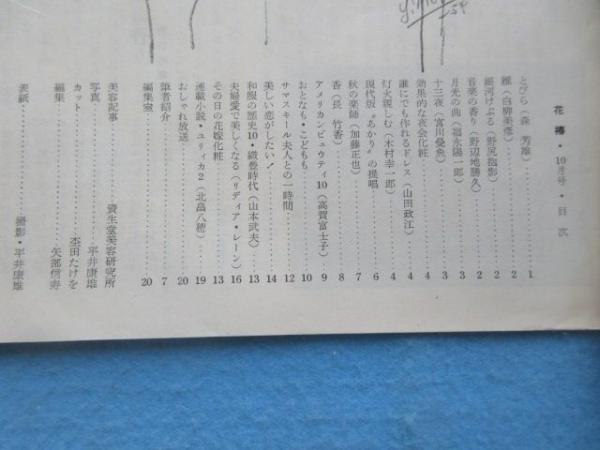 花椿・10月号・目次
とびら(森 芳雄) 1
雁(白柳美彦) 2
銀河けぶる(野尻抱影) 2
音楽の香り(野辺地勝久) 2
月光の曲(福永陽一郎) 3
十三夜(宮川曼魚) 3
効果的な夜会化粧 4
誰にでも作れるドレス(山田政江) 4
灯火親しむ(木村幸一郎) 4
現代版〝あかり〟の提唱 6
秋の楽師(加藤正也) 7
香(長 竹香) 8
アメリカンビュウティ10(高賀富士子) 9
おとなも・こどもも 10
サマスキール夫人との一時間 12
美しい恋がしたい! 14
和服の歴史10・織豊時代(山本武夫) 13
夫婦愛で美しくなる(リディア・レーン) 16
その日の花嫁化粧 13
連載小説・ユリィカ2(北畠八穂) 19
おしゃれ放送 20
筆者紹介 7
編集室 20
美容記事 資生堂美容研究所
写真 平井康雄
カット 杢田たけを
編集 矢部信寿
表紙 撮影・平井康雄